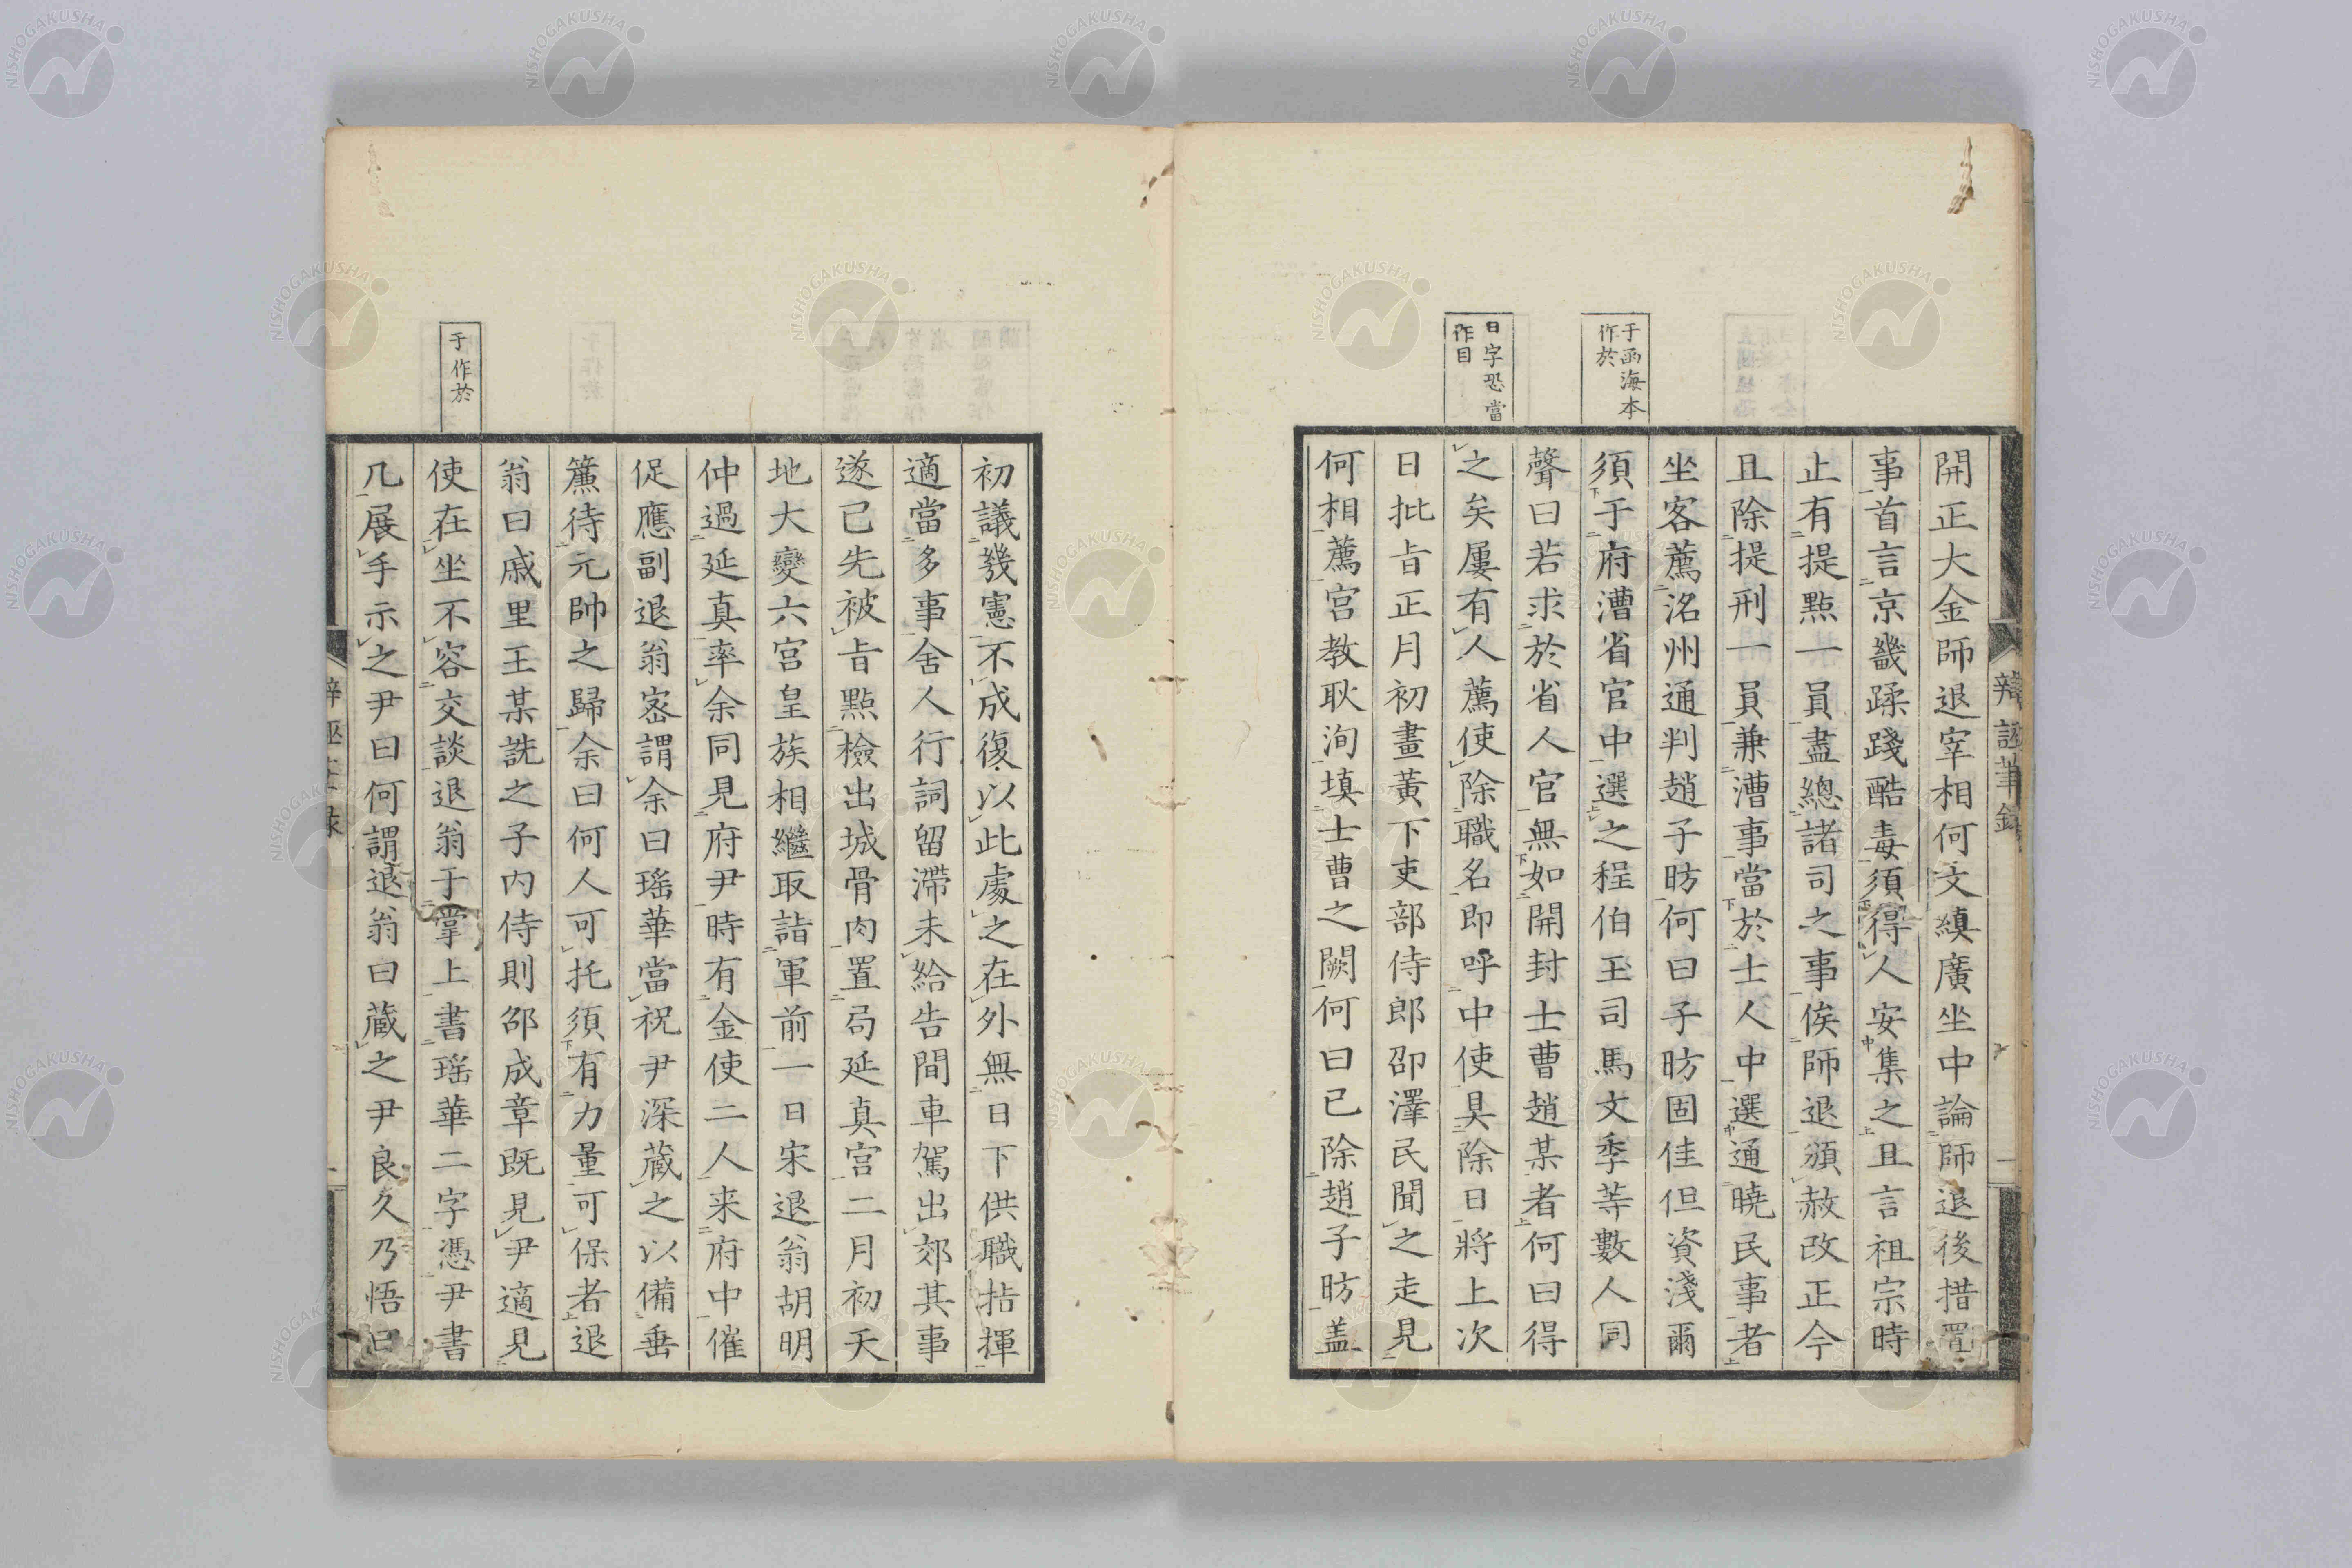 于函海本
作於
日字恐當
作目
辨誣筆錄
一
開正大金師退宰相何文縝廣坐中論師退後措置
事首言京畿蹂踐酷毒須得人安集之且言祖宗時
止有提點一員盡總諸司之事俟師退頒赦改正今
且除提刑一員兼漕事當於士人中選通曉民事者
坐客薦洺州通判趙子昉何曰子昉固佳但資淺爾
須于府漕省官中選之程伯玉司馬文季等數人同
聲曰若求於省人官無如開封士曹趙某者何曰得
之矣屢有人薦使除職名即呼中使具除日將上次
日批旨正月初畫黃下吏部侍郎邵澤民聞之走見
何相薦宫教耿洵填士曹之闕何曰已除趙子昉盖
于作於
初議幾憲不成復以此處之在外無日下供職指揮
適當多事舍人行詞留滯未給告間車駕出郊其事
遂已先被旨點檢出城骨肉置局延真宫二月初天
地大變六宫皇族相繼取詣軍前一日宋退翁胡明
仲過延真率余同見府尹時有金使二人来府中催
促應副退翁宻謂余曰瑶華當祝尹深藏之以備垂
簾待元帥之歸余曰何人可托須有力量可保者退
翁曰戚里王某詵之子内侍則邵成章既見尹適見
使在坐不容交談退翁于掌上書瑶華二字憑尹書
几展手示之尹曰何謂退翁曰藏之尹良久乃悟曰